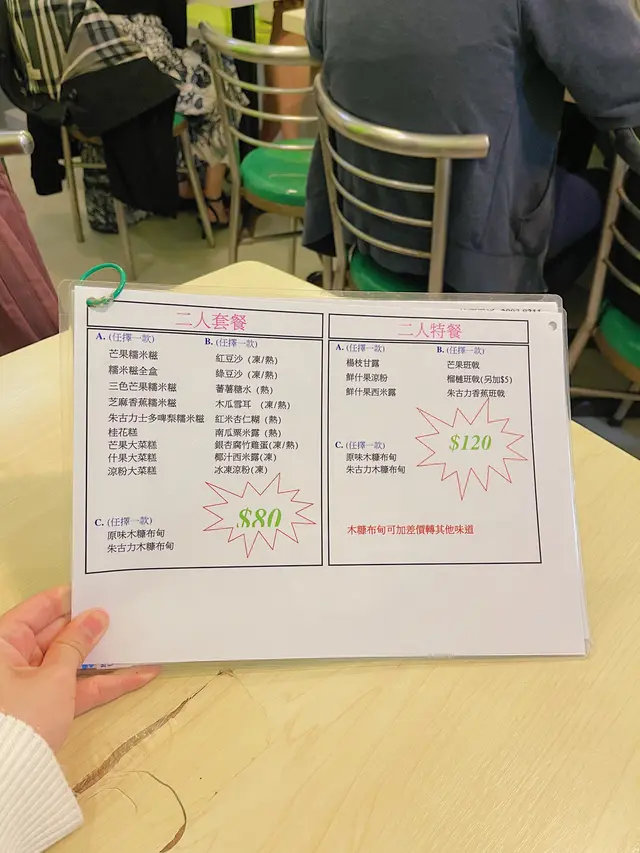 二人套餐
A. (任擇一款)
芒果糯米糍
糯米糍全盒
三色芒果糯米糍
芝麻香蕉糯米糍
朱古力士多啤梨糯米糍
桂花糕
芒果大菜糕
什果大菜糕
涼粉大菜糕
B. (任擇一款)
紅豆沙 (凍/熱)
綠豆沙 (凍/熱)
蕃薯糖水 (熱)
木瓜雪耳 (凍/熱)
紅米杏仁糊 (熱)
南瓜粟米露 (熱)
銀杏腐竹雞蛋(凍/熱)
椰汁西米露(凍)
冰凍涼粉(凍)
$80
C. (任擇一款)
原味木糠布甸
朱古力木糠布甸
二人特餐
A. (任擇一款)
楊枝甘露
鮮什果涼粉
鮮什果西米露
B. (任擇一款)
芒果班戟
榴槤班戟(另加$5)
朱古力香蕉班戟
$120
C. (任擇一款)
原味木糠布甸
朱古力木糠布甸
木糠布甸可加差價轉其他味道